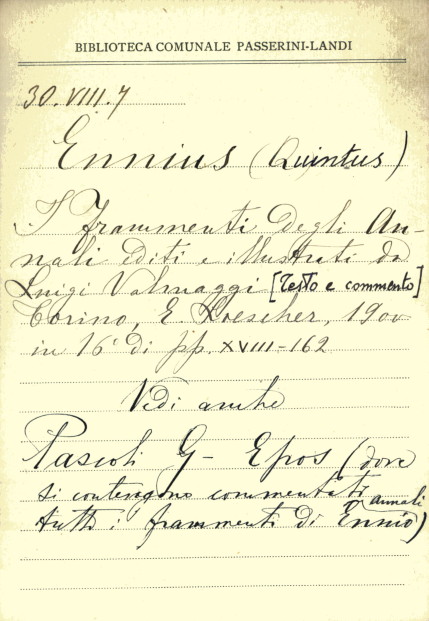 BIBLIOTECA COMUNALE PASSERINI-LANDI
30.VIII.7
Ennius (Quintus)
I frammenti degli An-
nali editi e illustrati da
Luigi Valmaggi [Testo e commento]
Torino, E. Loescher, 1900
in 16° di pp. XVIII-162
Vedi anche
Pascoli G - Epos (dove
si contengono commentati
tutti i frammenti di Ennio) annali